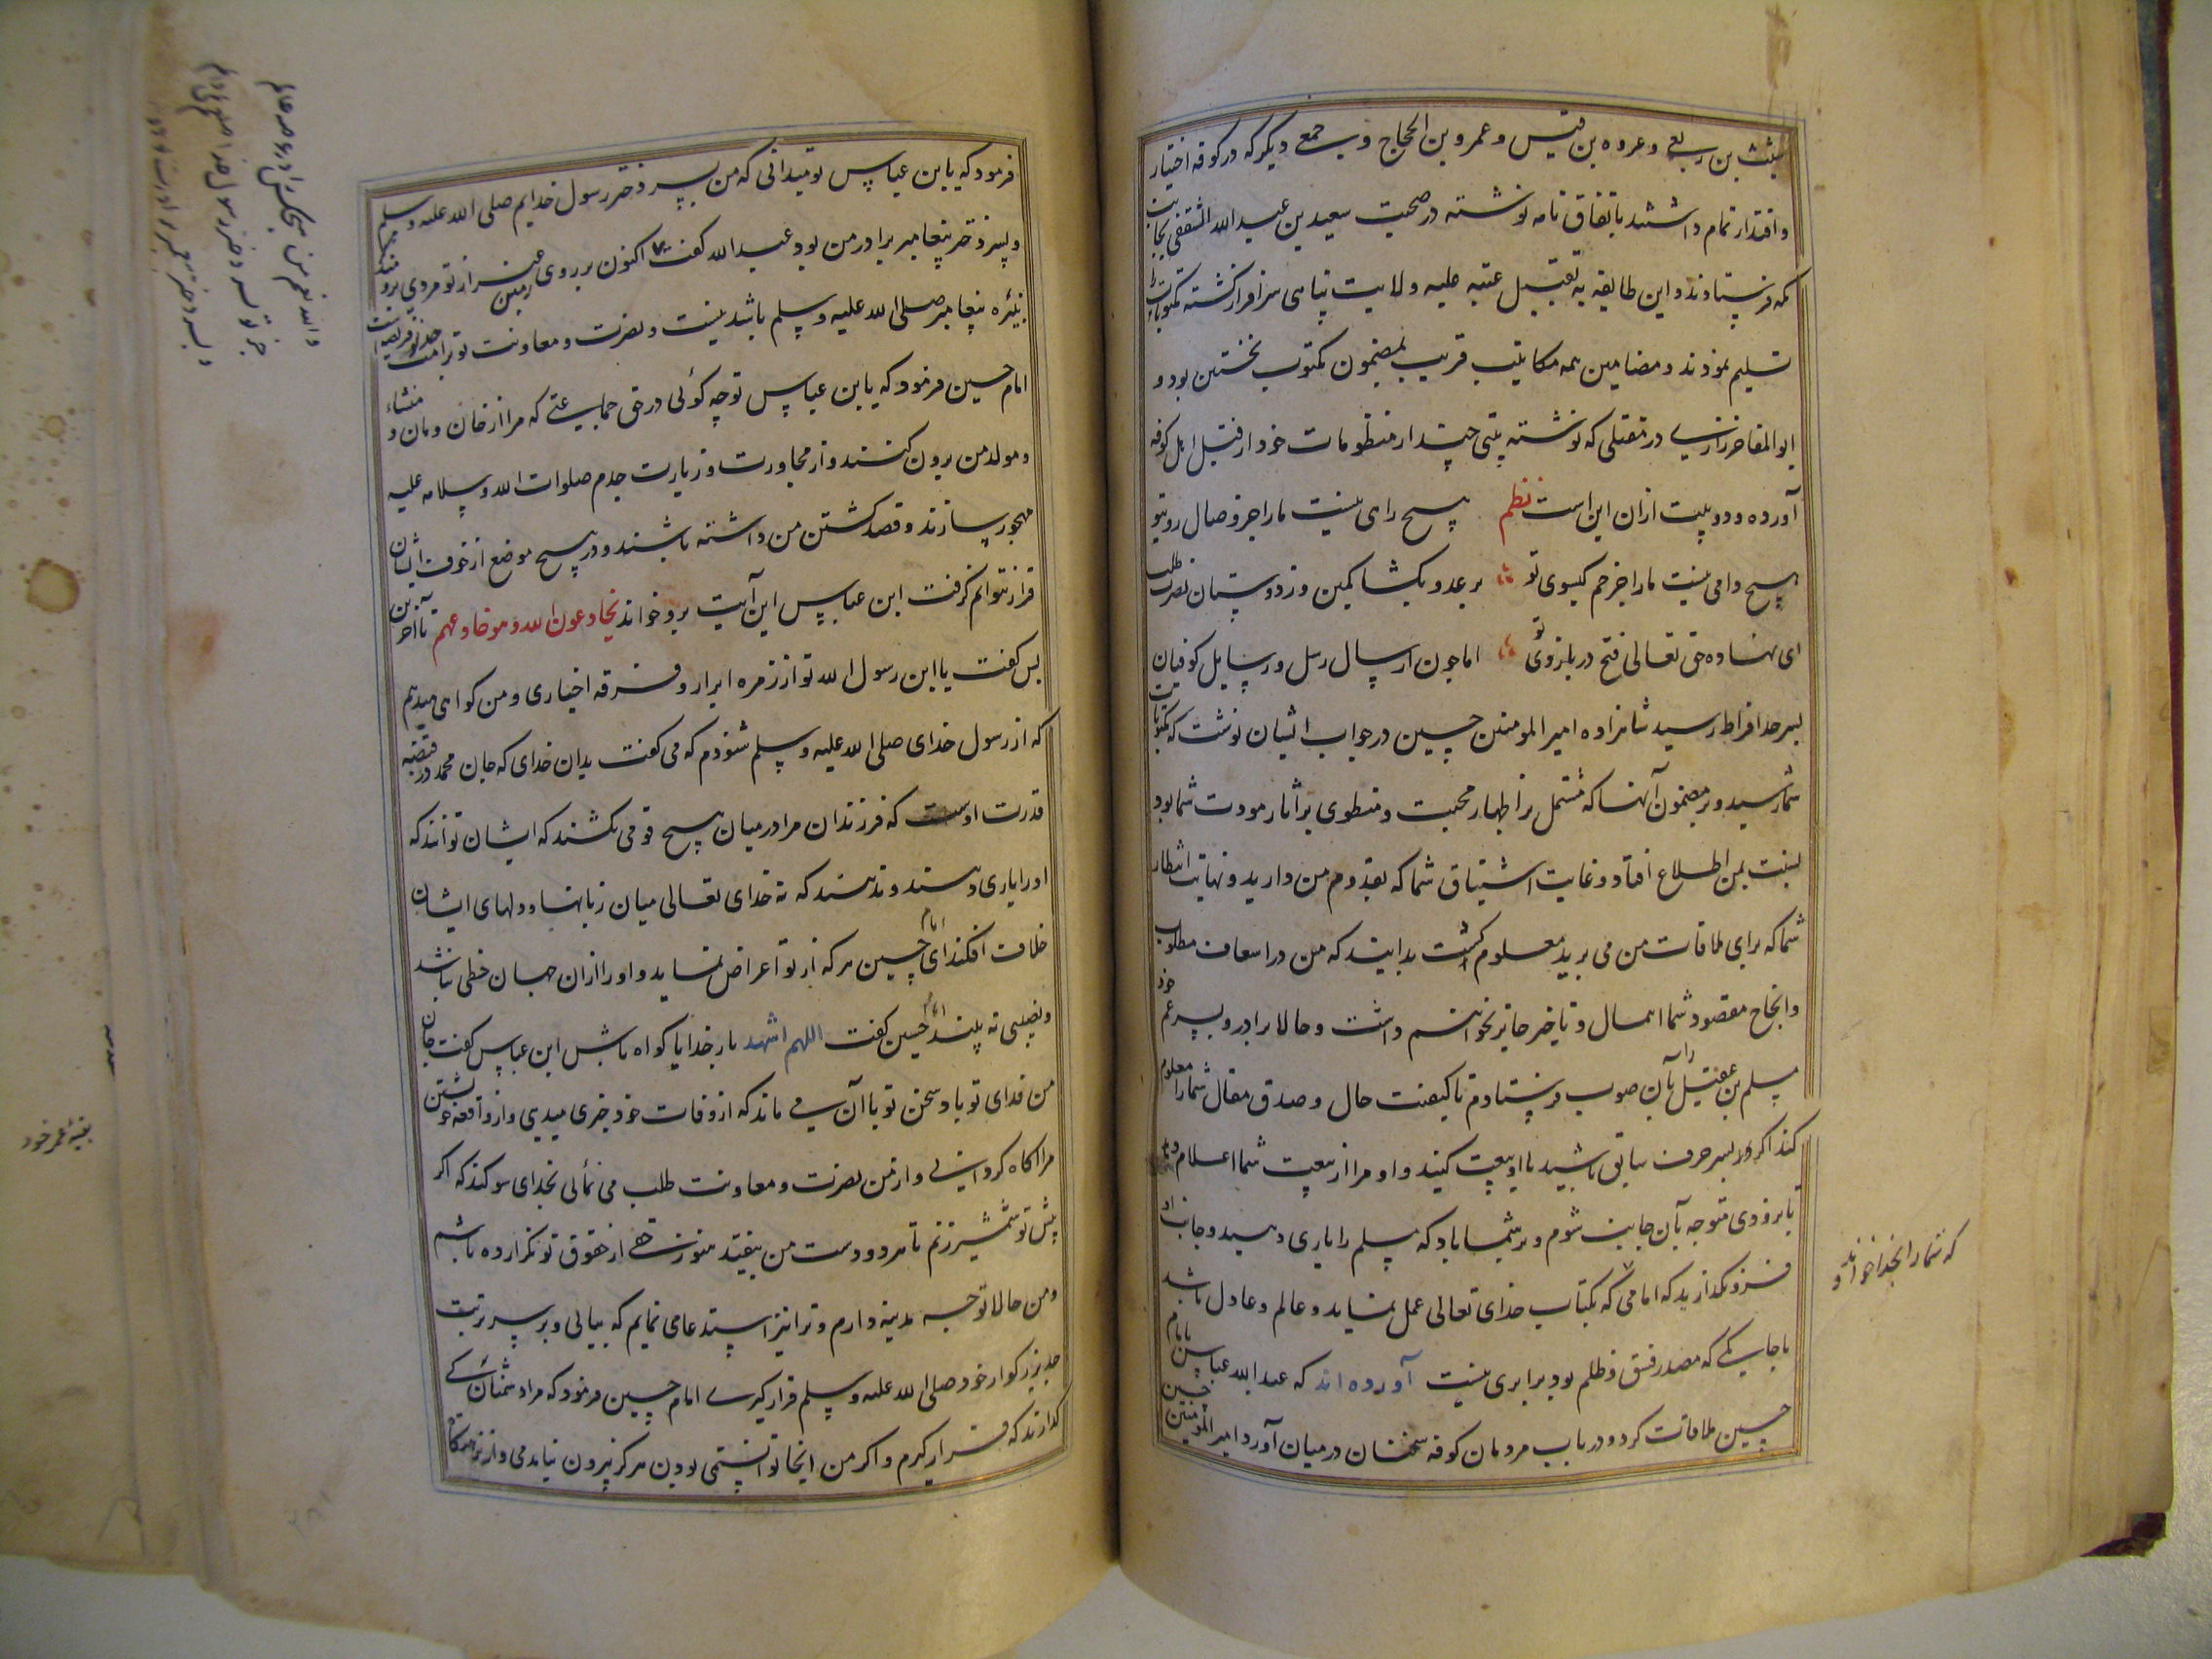 شبث بن ربعی و عروه بن قیس و عمرو بن الحجاج و جمعی دیگر که در کوفه اختیار
و اقتدار تمام داشتند باتفاق نامه نوشته در صحبت سعید بن عبد الله الثقفی بجانب
مکه فرستادند و این طایفه به تقبیل عتبه علیه ولایت پناهی سرافراز گشته مکتوبات را
تسلیم نمودند و مضامین همه مکاتیب قریب بمضمون مکتوب نخستین بود و
ابو المفاخر رازی در مقتلی که نوشته بیتی چند از منظومات خود از قبل اهل کوفه
آورده و دو بیت ازان این است نظم هیچ رای نیست ما را جز وصال روی تو
هیچ دامی نیست ما را جز خم کیسوی تو بر عدو بکشا کمین و ز دوستان نصرت طلب
ای نهاده حق تعالی فتح در بازوی تو اما چون ارسال رسل و رسایل کوفیان
بسر حد افراط رسید شاهزاده امیر المومنین حسین در جواب ایشان نوشت که مکتوبات
شما رسید و بر مضمون آنها که مشتمل بر اظهار محبت و منطوی بر آثار مودت شما بود
نسبت بمن اطلاع افتاد و غایت اشتیاق شما که بقدوم من دارید و نهایت انتظار
شما که برای ملاقات من می برید معلوم کشت بدانید که من در اسعاف مطلوب
و انجاح مقصود شما اهمال و تاخیر جایز نخواهم داشت و حالا برادر و پسر عم خود
مسلم بن عقیل را بآن صوب فرستادم تا کیفیت حال و صدق مقال شما را معلوم
کند اکر بسر حرف سابق باشید با او بیعت کنید و او مرا از بیعت شما اعلام دهد
تا بزودی متوجه بآن جانب شوم و بر شما باد که مسلم را یاری دهید و جانب او
فرو نکذارید که امامی که بکتاب خدای تعالی عمل نماید و عالم و عادل باشد
با حاکمی که مصدر فسق و ظلم بود برابری نیست آورده اند که عبد الله عباس با امام
حسین ملاقات کرد و در باب مردمان کوفه سخنان در میان آورد امیر المومنین حسین
که شما را بخدا خواند و
فرمود که یا بن عباس تو میدانی که من پسر دختر رسول خدایم صلی الله علیه و سلم
و پسر دختر پیغامبر برادر من بود عبد الله کفت اکنون بر روی زمین غیر از تو مردی
نبیره پیغامبر صلی الله علیه و سلم باشد نیست و نصرت و معاونت تو بر امت
امام حسین فرمود که یا بن عباس تو چه کوئی در حق جماعتی که مرا از خان و مان و منشاء
و مولد من بیرون کنند و از مجاورت و زیارت جدم صلوات الله و سلامه علیه
مهجور سازند و قصد کشتن من داشته باشند و در هیچ موضع از خوف ایشان
قرار نتوانم کرفت ابن عباس این آیت برو خواند یخادعون الله و هو خادعهم تا آخر
پس کفت یا ابن رسول الله تو از زمره ابرار و فرقه اخیاری و من کواهی میدهم
که از رسول خدای صلی الله علیه و سلم شنودم که می کفت بدان خدای که جان محمد در قبضه
قدرت اوست که فرزندان مرا در میان هیچ قومی نکشند که ایشان توانند که
او را یاری دهند و ندهند که نه خدای تعالی میان زبانها و دلهای ایشان
خلاف افکند ای امام حسین هر که از تو اعراض نماید و او را ازان جهان حظی نباشد
و نصیبی نه بیند امام حسین کفت اللهم اشهد بار خدایا کواه باش ابن عباس کفت جان
من فدای تو باد سخن تو با آن می ماند که از وفات خود خبری میدهی و از واقعه خویشتن
مرا آکاه کردانی و از من نصرت و معاونت طلب می نمائی بخدای سوکند که اکر
پیش تو شمشیر زنم تا هر دو دست من بیفتد هنوز حقی از حقوق تو نکزارده باشم
و من حالا توجه مدینه دارم و ترا نیز استدعا می نمایم که بیائی و بر سر تربت
جد بزرکوار خود صلی الله علیه و سلم قرار کیری امام حسین فرمود که مرا دشمنان کی
کذارند که قرار کیرم و اکر من اینجا توانستمی بودن هرکز بیرون نیامدمی و از
بقیه عمر خود